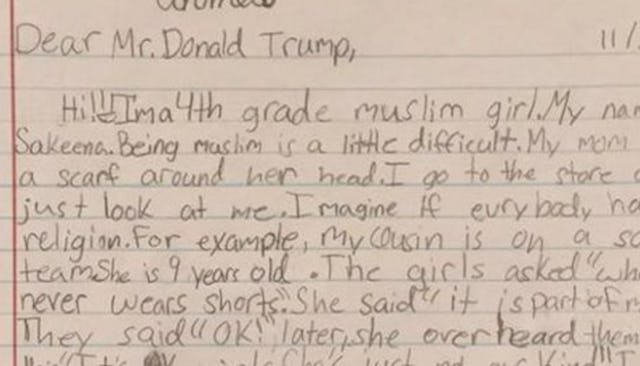 Dear Mr. Donald Trump, 11/
Hi!!! I'm a 4th grade muslim girl. My nam
Sakeena. Being muslim is a little difficult. My mom
a scarf around her head. I go to the store
just look at me. Imagine if eurybody ha
religion. For example, my cousin is on a so
team She is 9 years old. The girls asked "wh
never wears shorts." She said "it is part of
They said "OK!" later, she overheard them